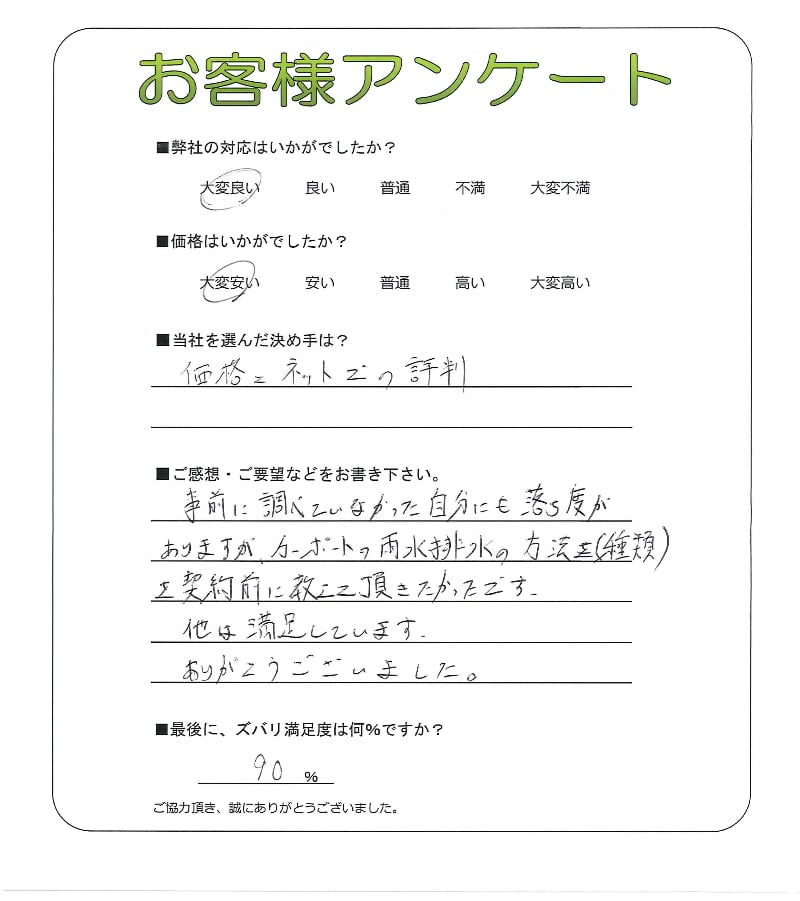 お客様アンケート
■弊社の対応はいかがでしたか？
大変良い 良い 普通 不満 大変不満
■価格はいかがでしたか？
大変安い 安い 普通 高い 大変高い
■当社を選んだ決め手は？
価格とネットでの評判
■ご感想・ご要望などをお書き下さい。
事前に調べていなかった自分にも落ち度が
ありますが、カーポートの雨水排水の方法を(種類)
を契約前に教えて頂きたかったです.
他は満足しています.
ありがとうございました。
■最後に、ズバリ満足度は何%ですか？
90 %
ご協力頂き、誠にありがとうございました。